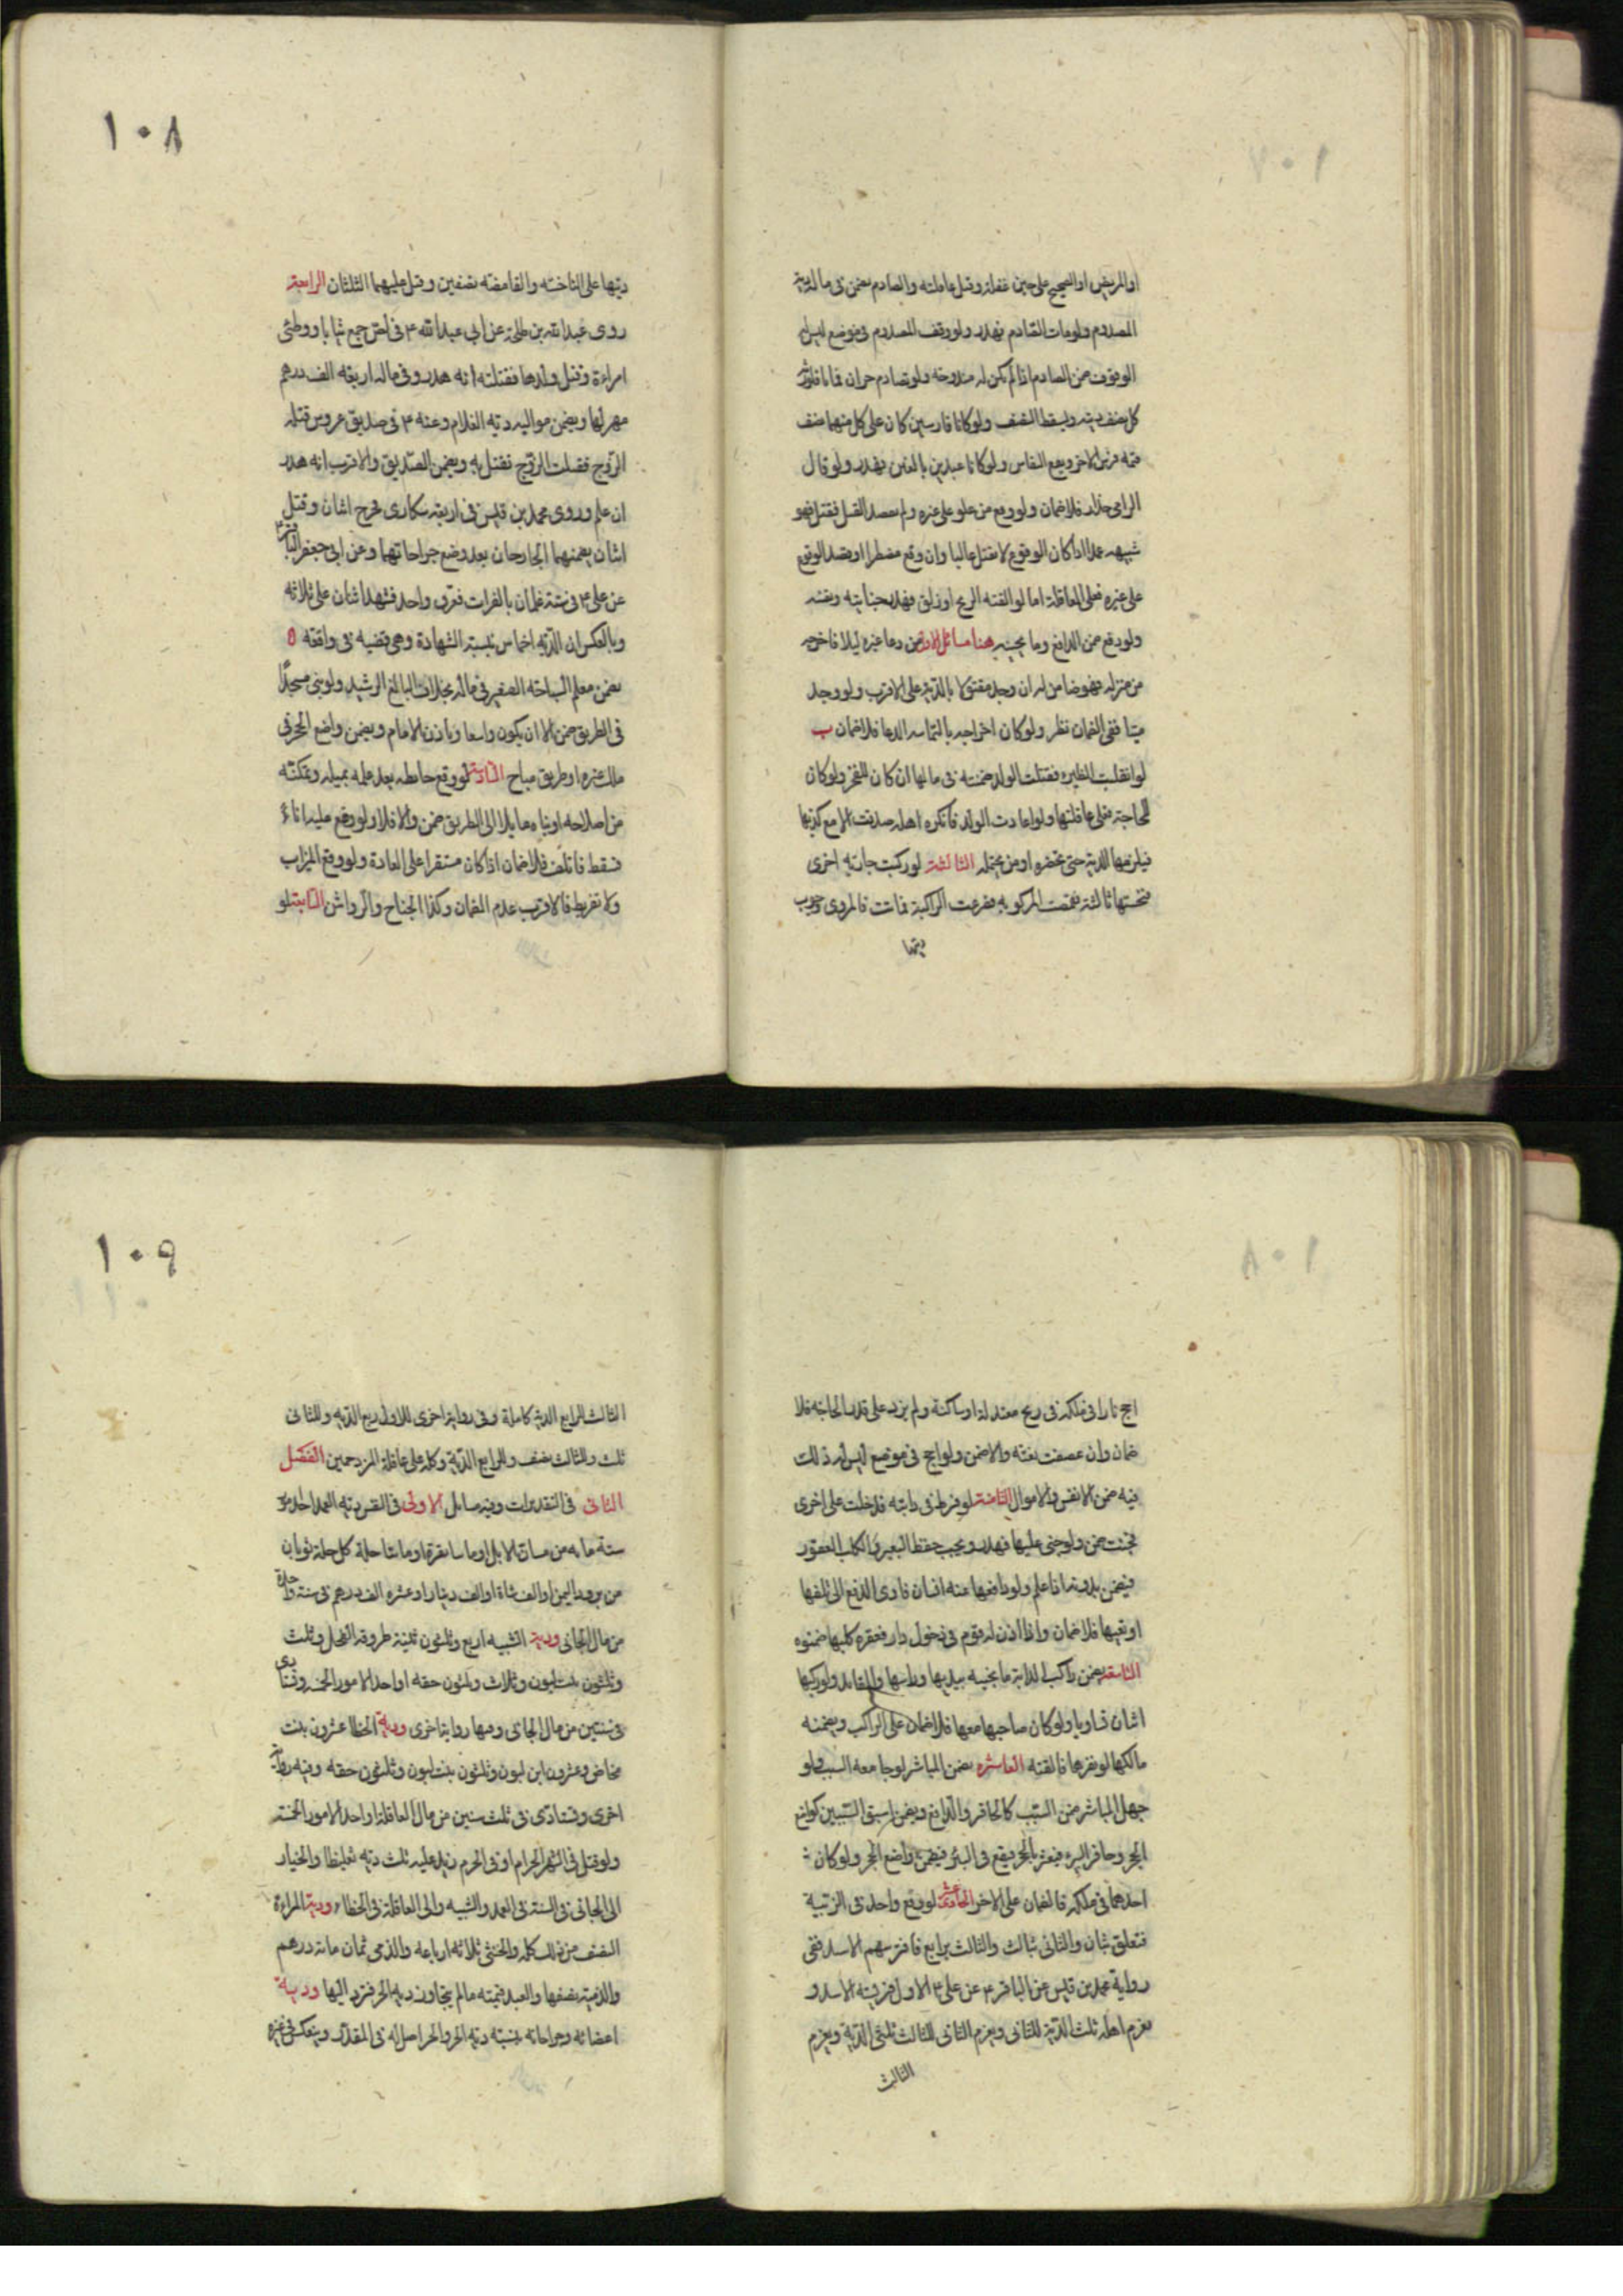 او المريض او الصحيح على حين غفلة وقيل عاقلته والصادم يضمن في ماله دية
المصدوم ولو مات الصادم فهدر ولو وقف المصدوم في موضع ليس له
الوقوف ضمن الصادم اذا لم يكن له مندوحة ولو تصادم حران فماتا فلورثة
كل نصف ديته ويسقط النصف ولو كانا فارسين كان على كل منهما نصف
قيمة فرس الاخر ويقع التقاص ولو كانا عبدين بالغين فهدر ولو قال
الرامي حذار فلا ضمان ولو وقع من علو على غيره ولم يقصد القتل فقتل فهو
شبيه عمد اذا كان الوقوع لا يقتل غالبا وان وقع مضطرا او قصد الوقوع
على غيره فعلى العاقلة اما لو القته الريح او زلق فهدر بجنايته ونفسه
ولو دفع ضمن الدافع وما يجنيه هنا مسائل الاولى من دعا غيره ليلا فاخرجه
من منزله فهو ضامن له ان وجد مقتولا بالدية على الاقرب ولو وجد
ميتا ففي الضمان نظر ولو كان اخراجه بالتماسه الدعا فلا ضمان ب
لو انقلبت الظئر فقتلت الولد ضمنته في مالها ان كان للفخر ولو كان
للحاجة فعلى عاقلتها ولو اعادت الولد فانكره اهله صدقت الا مع كذبها
فيلزمها الدية حتى تحضره او من يحتمله الثالثة لو ركبت جارية اخرى
فنخستها ثالثة فقمصت المركوبة فصرعت الراكبة فماتت فالمروي وجوب
ديتها
١٠٨
ديتها على الناخسة والقامصة نصفين وقيل عليهما الثلثان الرابعة
روى عبد الله بن طلحة عن ابي عبد الله ع في لص جمع ثيابا ووطئ
امراءة وقتل ولدها فقتلته انه هدر وفي ماله اربعة الف درهم
مهر لها ويضمن مواليه دية الغلام وعنه ع في صديق عروس قتله
الزوج فقتلت الزوج فقتل به ويضمن الصديق والاقرب انه هدر
ان علم وروى محمد بن قيس في اربعة سكارى فجرح اثنان وقتل
اثنان يضمنهما الجارحان بعد وضع جراحاتهما وعن ابي جعفر الباقر ع
عن علي ع في ستة غلمان بالفرات فغرق واحد فشهد اثنان على ثلاثة
وبالعكس ان الدية اخماس بنسبة الشهادة وهي قضية في واقعة ه
يضمن معلم السباحة الصغير في ماله بخلاف البالغ الرشيد ولو بنى مسجدا
في الطريق ضمن الا ان يكون واسعا وياذن الامام ويضمن واضع الحجر في
ملك غيره او طريق مباح السادسة لو وقع حايطه بعد علمه بميله وتمكنه
من اصلاحه او بناه مايلا الى الطريق ضمن والا فلا ولو وضع عليه اناء
فسقط فاتلف فلا ضمان اذا كان مستقرا على العادة ولو وقع الميزاب
ولا تفريط فالاقرب عدم الضمان وكذا الجناح والرواشن السابعة لو
اجج نارا في ملكه في ريح معتدلة او ساكنة ولم يزد على قدر الحاجة فلا
ضمان وان عصفت بغتة والا ضمن ولو اجج في موضع ليس له ذلك
فيه ضمن الانفس والاموال الثامنة لو فرط في دابته فدخلت على اخرى
فجنت ضمن ولو جنى عليها فهدر ويجب حفظ البعير والكلب العقور
فيضمن بدونه اذا علم ولو دافعها عنه انسان فادى الدفع الى تلفها
او تعيبها فلا ضمان واذا اذن له قوم في دخول دار فعقره كلبها ضمنوه
التاسعة يضمن راكب الدابة ما تجنيه بيديها وراسها والقائد ولو ركبها
اثنان تساويا ولو كان صاحبها معها فلا ضمان على الراكب ويضمنه
مالكها لو نفرها فالقته العاشرة يضمن المباشر لو جامعه السبب ولو
جهل المباشر ضمن السبب كالحافر والدافع ويضمن اسبق السببين كواضع
الحجر وحافر البير فيعثر بالحجر فيقع في البئر فيضمن واضع الحجر ولو كان
احدهما في ملكه فالضمان على الاخر الحادية عشر لو وقع واحد في الزبية
فتعلق بثان والثاني بثالث والثالث برابع فافترسهم الاسد ففي
رواية محمد بن قيس عن الباقر ع عن علي ع الاول فريسة الاسد و
يغرم اهله ثلث الدية للثاني ويغرم الثاني للثالث ثلثي الدية ويغرم
الثالث
١٠٩
الثالث للرابع الدية كاملة وفي رواية اخرى للاول ربع الدية وللثاني
ثلث وللثالث نصف وللرابع الدية وكله على عاقلة المزدحمين الفصل
الثاني في التقديرات وفيه مسايل الاولى في النفس دية العمد احد امور
ستة مايه من مسان الابل او مايتا بقرة او مايتا حلة كل حلة ثوبان
من برود اليمن او الف شاة او الف دينار او عشرة الف درهم في سنة واحدة
من مال الجاني ودية الشبيه اربع وثلثون ثنية طروقة الفحل وثلث
وثلثون بنت لبون وثلاث وثلثون حقة او احد الامور الخمسة وتستادى
في سنتين من مال الجاني وفيها رواية اخرى ودية الخطا عشرون بنت
مخاض وعشرون ابن لبون وثلثون بنت لبون وثلثون حقة وفيه رواية
اخرى وتستادى في ثلث سنين من مال العاقلة او احد الامور الخمسة
ولو قتل في الشهر الحرام او في الحرم زيد عليه ثلث دية تغليظا والخيار
الى الجاني في الستة في العمد والشبيه والى العاقلة في الخطاء ودية المراءة
النصف من ذلك كله والخنثى ثلاثة ارباعه والذمي ثمان مائة درهم
والذمية نصفها والعبد قيمته ما لم يتجاوز دية الحر فترد اليها ودية
اعضائه وجراحاته بنسبة دية الحر والحر اصل له في المقدر وينعكس في غيره